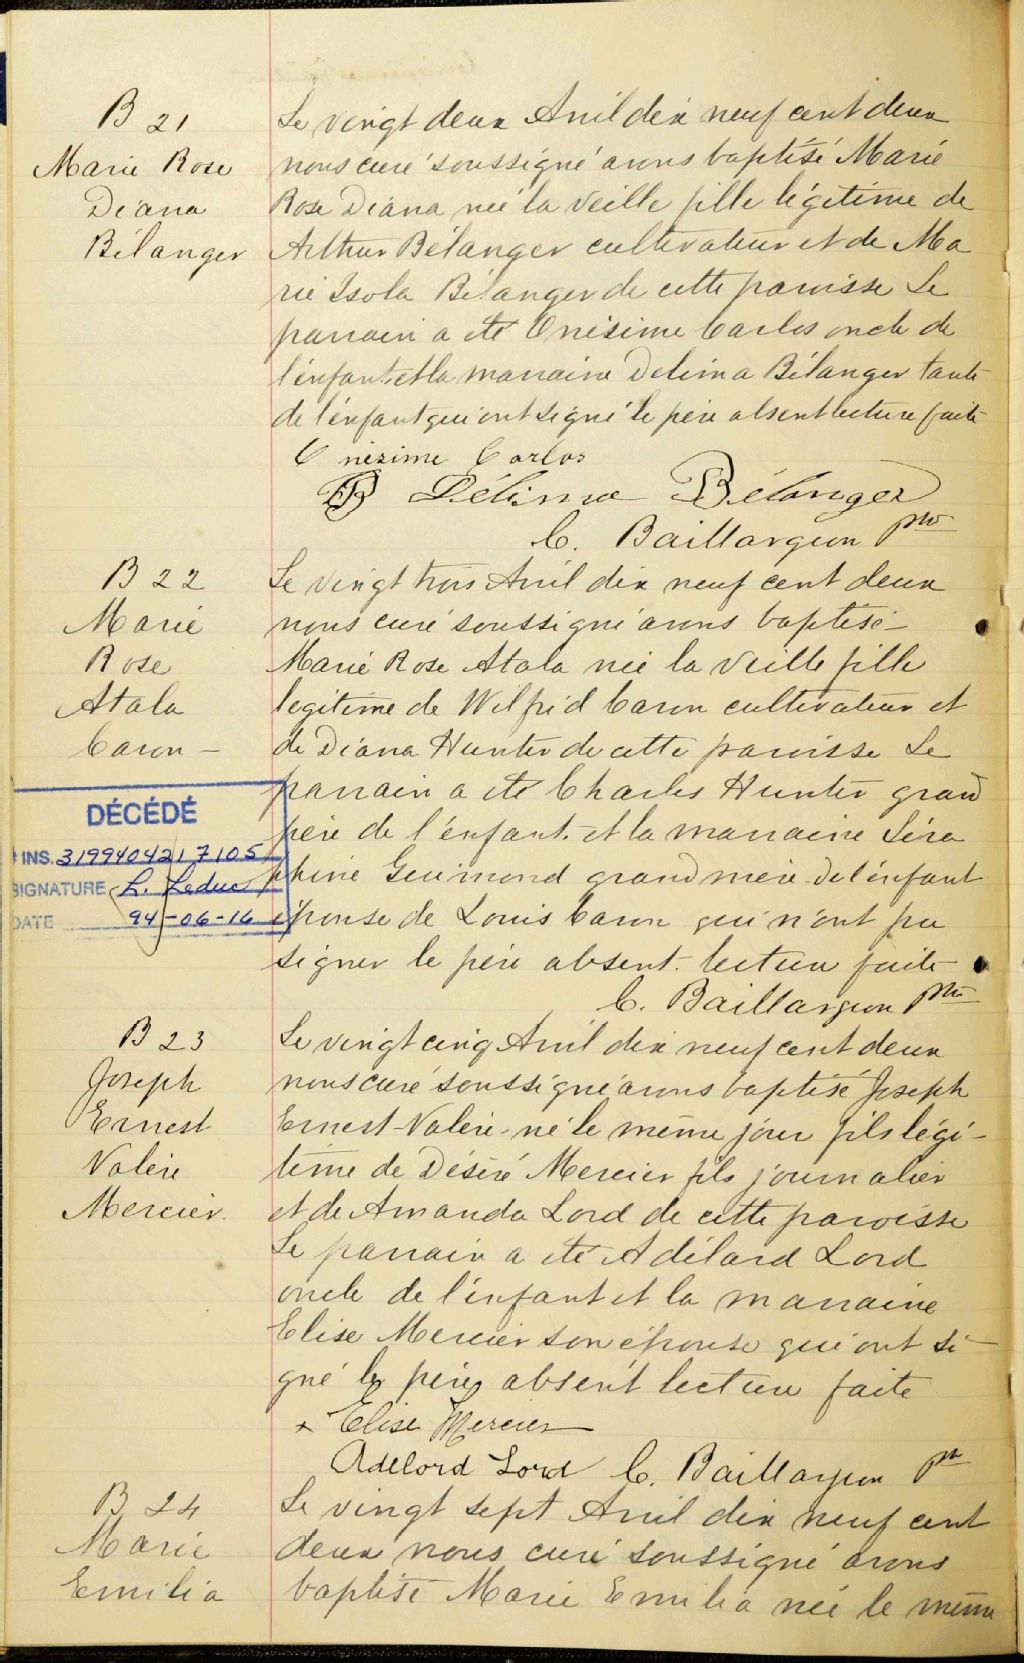 B 21
Marie Rose
Diana
Bélanger
Le vingt deux Avril dix neuf cent deux
nous curé soussigné avons baptisé Marie
Rose Diana née la veille fille légitime de
Arthur Bélanger cultivateur et de Ma
rie Isola Bélanger de cette paroisse Le
parrain a été Onésime Carlos oncle de
l'enfant et la marraine Delima Bélanger tante
de l'enfant qui ont signé le père absent lecture faite
Onésime Carlos
Délima Bélanger
C. Baillargeon ptre
B 22
Marie
Rose
Atala
Caron –
Le vingt trois Avril dix neuf cent deux
nous curé soussigné avons baptisé
Marie Rose Atala née la veille fille
legitime de Wilfrid Caron cultivateur et
de Diana Hunter de cette paroisse Le
parrain a été Charles Hunter grand
père de l'enfant et la marraine Séra
phine Guimond grand mère de l'enfant
épouse de Louis Caron qui n'ont pu
signer le père absent. lecture faite
C. Baillargeon ptre
DÉCÉDÉ
INS. 3199404217105
SIGNATURE L. Leduc
DATE 94-06-16
B 23
Joseph
Ernest
Valère
Mercier.
Le vingt cinq Avril dix neuf cent deux
nous curé soussigné avons baptisé Joseph
Ernest Valère né le même jour fils légi-
time de Désiré Mercier fils journalier
et de Amanda Lord de cette paroisse
Le parrain a été Adélard Lord
oncle de l'enfant et la marraine
Elise Mercier son épouse qui ont si-
gné le père absent lecture faite
x Elise Mercier
Adelord Lord C. Baillargeon ptr
B 24
Marie
Emilia
Le vingt sept Avril dix neuf cent
deux nous curé soussigné avons
baptisé Marie Emilia née le même